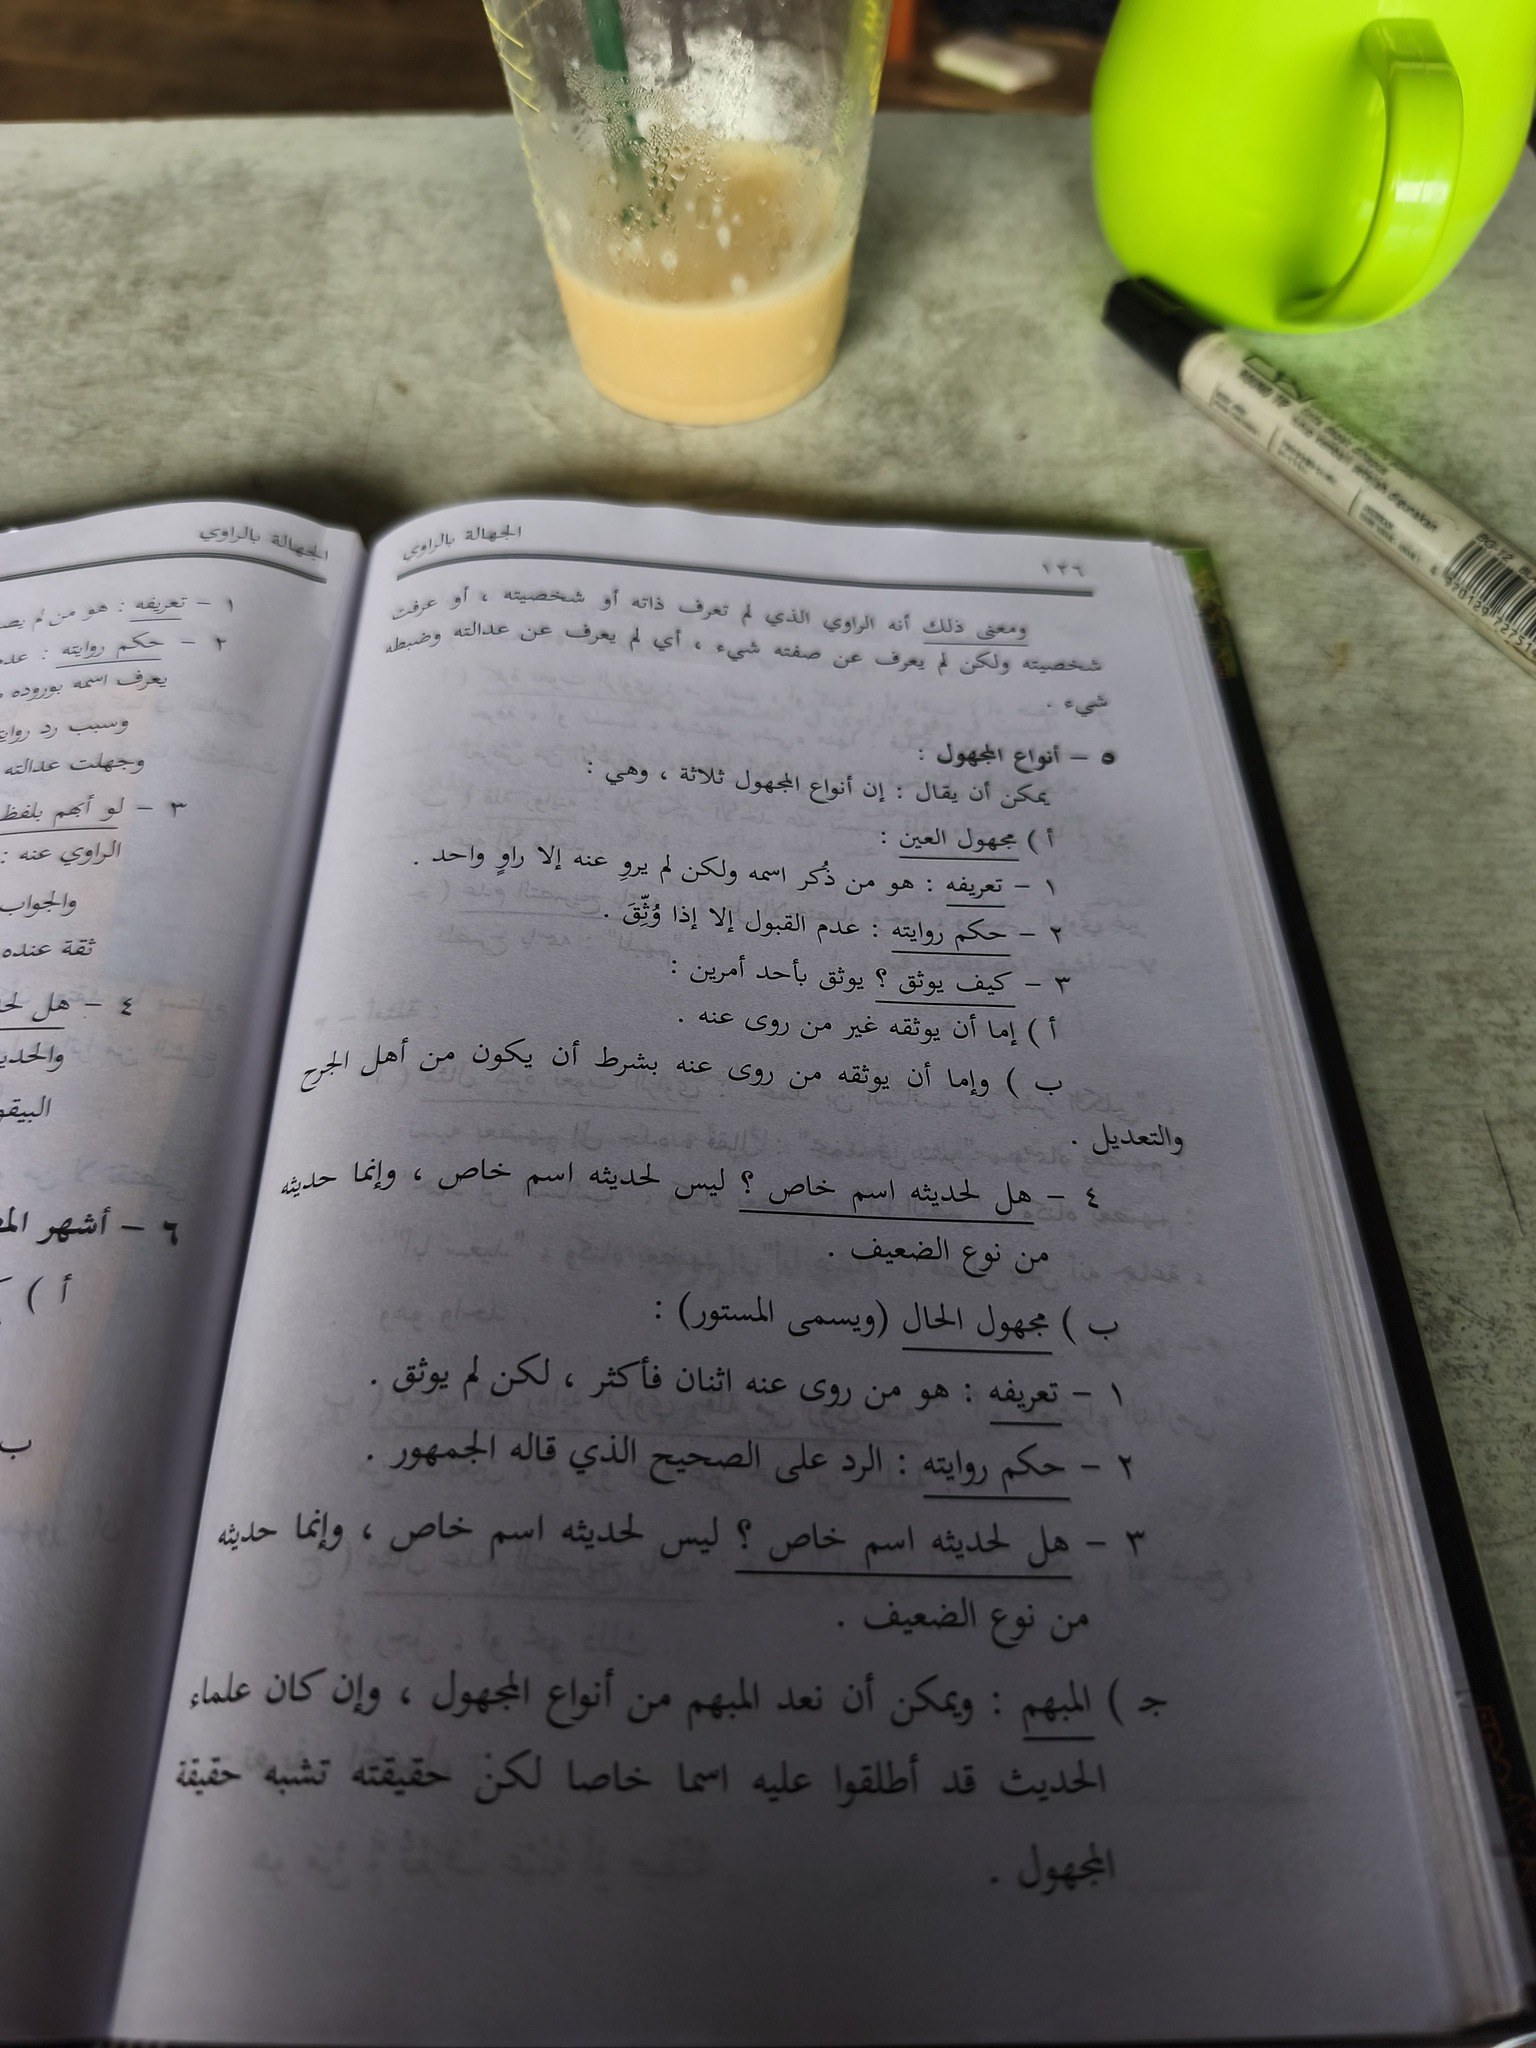 ١٣٦
الجهالة بالراوي
ومعنى ذلك أنه الراوي الذي لم تعرف ذاته أو شخصيته ، أو عرفت
شخصيته ولكن لم يعرف عن صفته شيء ، أي لم يعرف عن عدالته وضبطه
شيء .
٥ – أنواع المجهول :
يمكن أن يقال : إن أنواع المجهول ثلاثة ، وهي :
أ ) مجهول العين :
١ – تعريفه : هو من ذُكر اسمه ولكن لم يروِ عنه إلا راوٍ واحد .
٢ – حكم روايته : عدم القبول إلا إذا وُثِّقَ .
٣ – كيف يوثق ؟ يوثق بأحد أمرين :
أ ) إما أن يوثقه غير من روى عنه .
ب ) وإما أن يوثقه من روى عنه بشرط أن يكون من أهل الجرح
والتعديل .
٤ – هل لحديثه اسم خاص ؟ ليس لحديثه اسم خاص ، وإنما حديثه
من نوع الضعيف .
ب ) مجهول الحال (ويسمى المستور) :
١ – تعريفه : هو من روى عنه اثنان فأكثر ، لكن لم يوثق .
٢ – حكم روايته : الرد على الصحيح الذي قاله الجمهور .
٣ – هل لحديثه اسم خاص ؟ ليس لحديثه اسم خاص ، وإنما حديثه
من نوع الضعيف .
جـ ) المبهم : ويمكن أن نعد المبهم من أنواع المجهول ، وإن كان علماء
الحديث قد أطلقوا عليه اسما خاصا لكن حقيقته تشبه حقيقة
المجهول .
الجهالة بالراوي
١ – تعريفه : هو من لم يص
٢ – حكم روايته : عدم
يعرف اسمه بوروده
وسبب رد روايت
وجهلت عدالته
٣ – لو أبهم بلفظ
الراوي عنه :
والجواب
ثقة عنده
٤ – هل لح
والحدي
البيقو
٦ – أشهر الم
أ )
ب